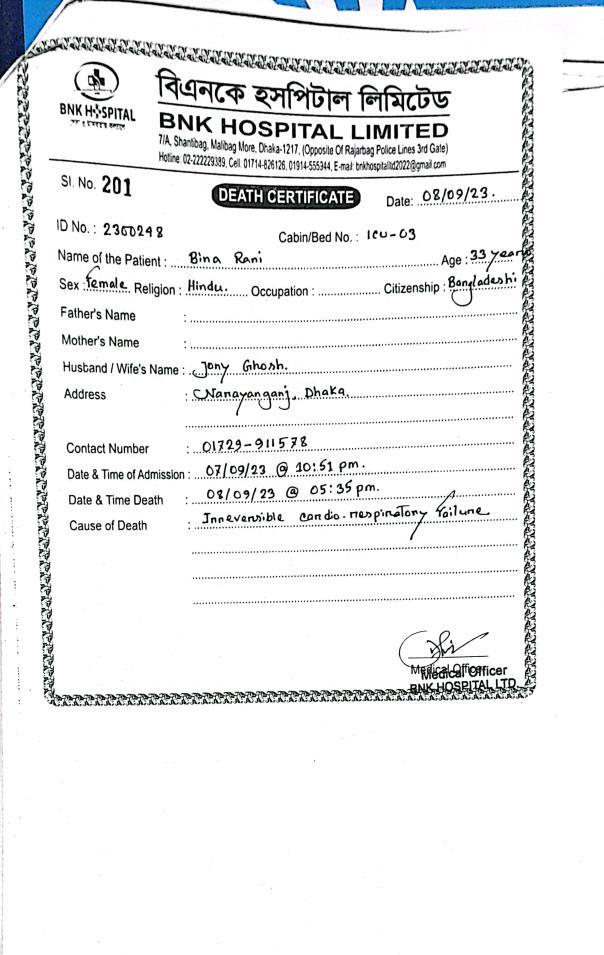 BNK HOSPITAL
বিএনকে হসপিটাল লিমিটেড
BNK HOSPITAL LIMITED
7/A, Shantibag, Malibag More, Dhaka-1217, (Opposite Of Rajarbag Police Lines 3rd Gate)
Hotline: 02-222229389, Cell: 01714-826126, 01914-555344, E-mail: bnkhospitalltd2022@gmail.com
Sl. No. 201
DEATH CERTIFICATE
Date: 08/09/23.
ID No. : 2300248
Cabin/Bed No. : ICU-03
Name of the Patient : Bina Rani Age : 33 years
Sex : Female Religion : Hindu. Occupation : Citizenship : Bangladeshi
Father's Name :
Mother's Name :
Husband / Wife's Name : Jony Ghosh.
Address : Narayanganj, Dhaka.
Contact Number : 01729-911578
Date & Time of Admission : 07/09/23 @ 10:51 pm.
Date & Time Death : 08/09/23 @ 05:35 pm.
Cause of Death : Irreversible cardio-respiratory failure
Medical Officer
Medical Officer
BNK HOSPITAL LTD.